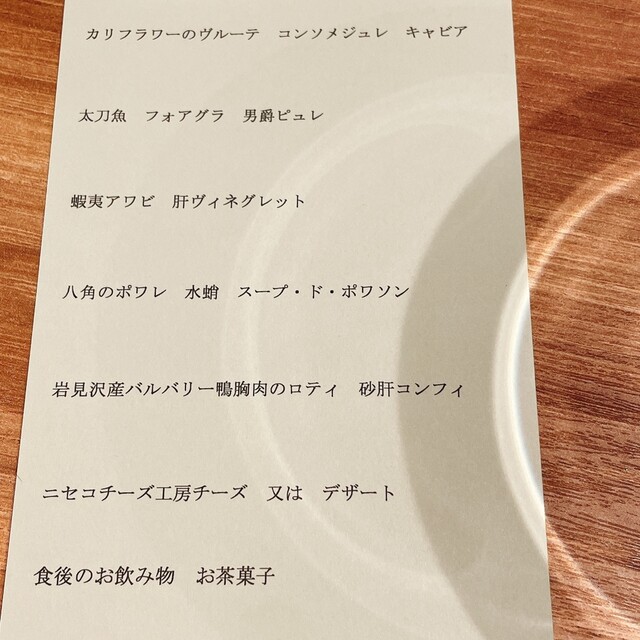 カリフラワーのヴルーテ　コンソメジュレ　キャビア
太刀魚　フォアグラ　男爵ピュレ
蝦夷アワビ　肝ヴィネグレット
八角のポワレ　水蛸　スープ・ド・ポワソン
岩見沢産バルバリー鴨胸肉のロティ　砂肝コンフィ
ニセコチーズ工房チーズ　又は　デザート
食後のお飲み物　お茶菓子